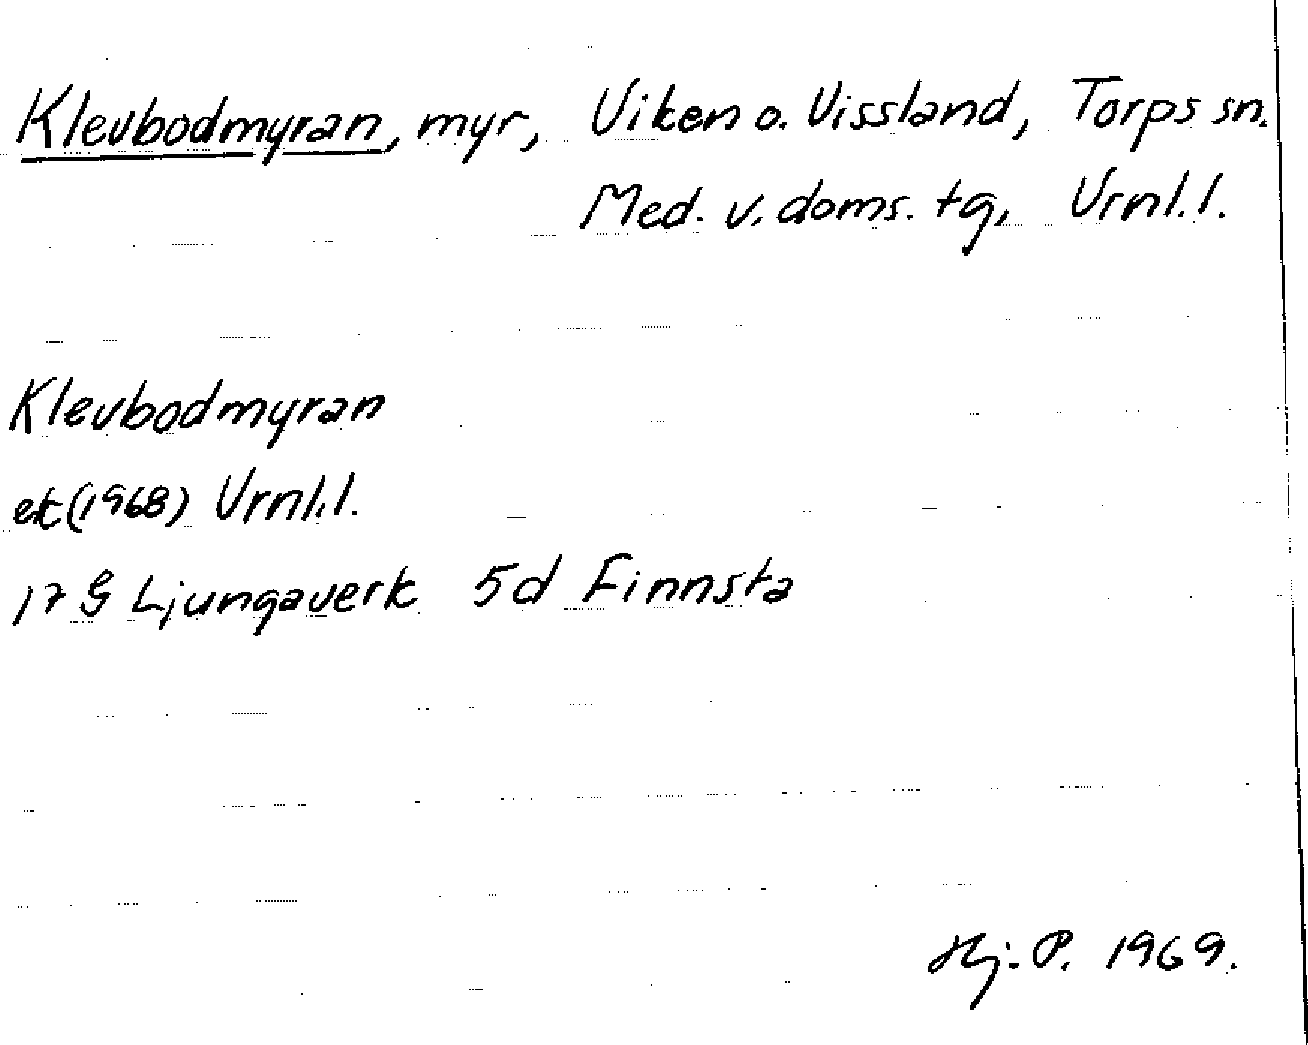 Klevbodmyran, myr, Viken o. Vissland, Torps sn.
Med. v. doms. tg, Vrnl.l.
Klevbodmyran
ek(1968) Vrnl.l.
17 G Ljungaverk 5d Finnsta
Hj. P. 1969.